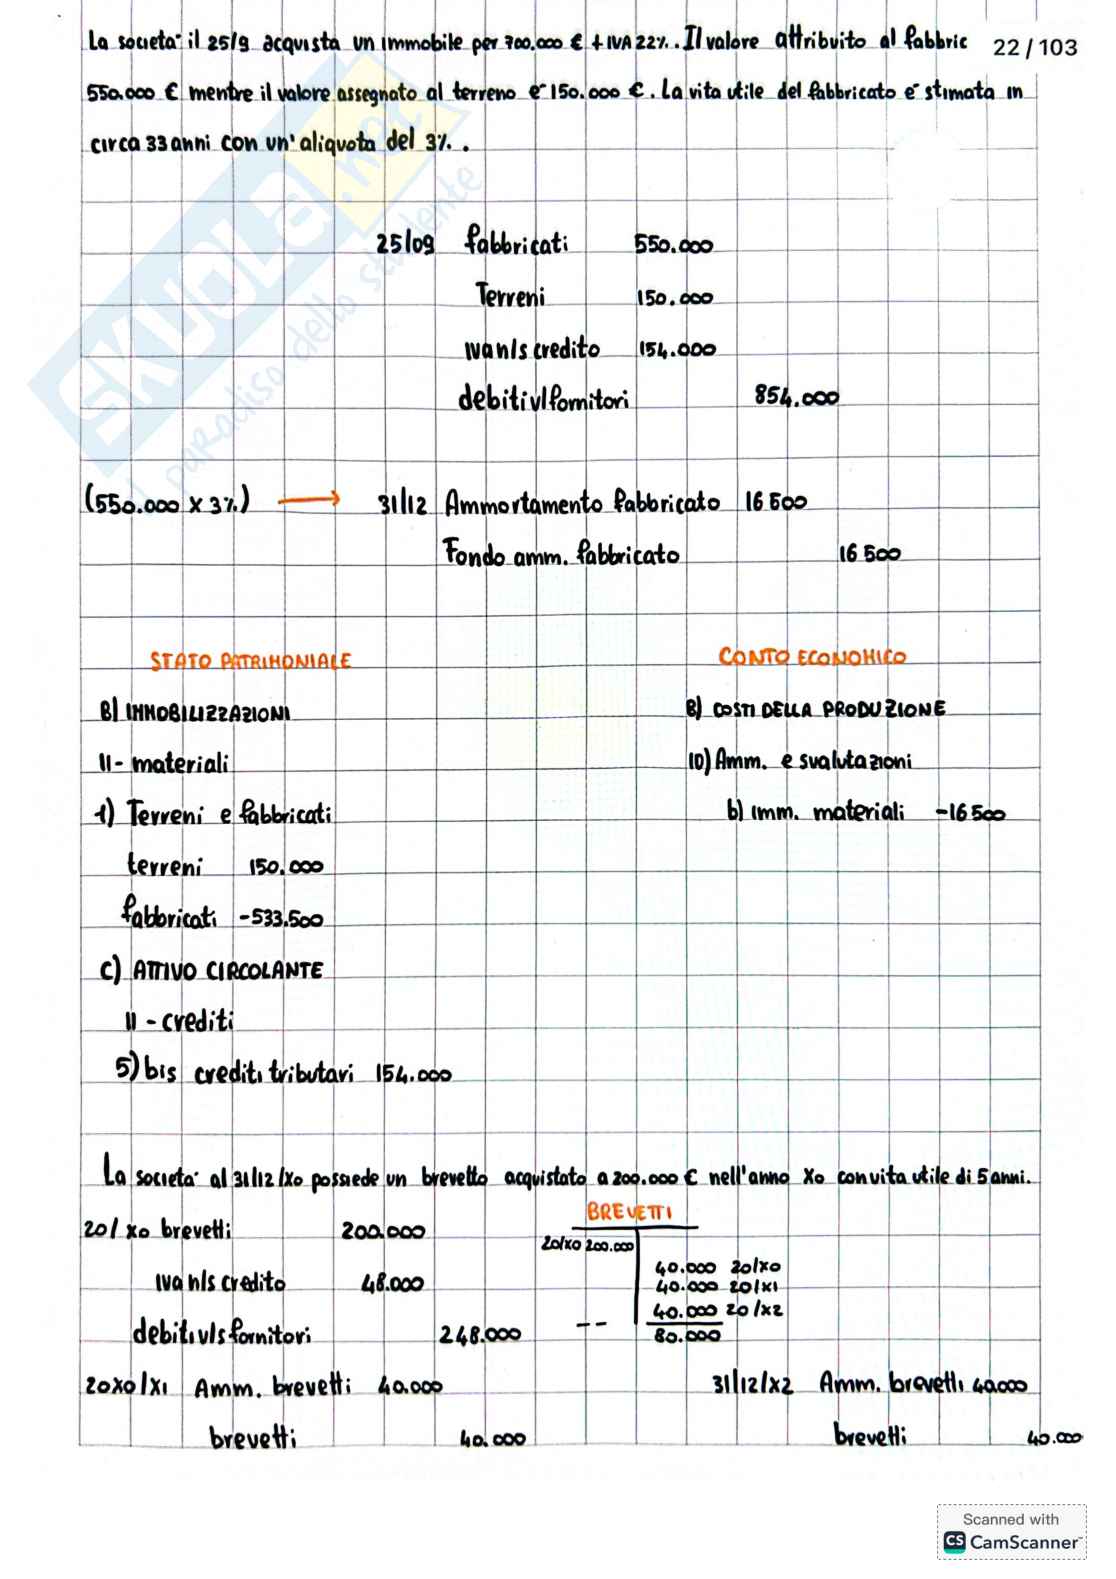 La società il 25/9 acquista un immobile per 700.000 € + IVA 22%. Il valore attribuito al fabbric
22 / 103
550.000 € mentre il valore assegnato al terreno è 150.000 €. La vita utile del fabbricato è stimata in
circa 33 anni con un'aliquota del 3%.
25/09 fabbricati 550.000
Terreni 150.000
iva n/s credito 154.000
debiti v/fornitori 854.000
(550.000 x 3%) → 31/12 Ammortamento fabbricato 16 500
Fondo amm. fabbricato 16 500
STATO PATRIMONIALE
CONTO ECONOMICO
B) IMMOBILIZZAZIONI
B) COSTI DELLA PRODUZIONE
II- materiali
10) Amm. e svalutazioni
1) Terreni e fabbricati
b) imm. materiali -16 500
terreni 150.000
fabbricati -533.500
C) ATTIVO CIRCOLANTE
II - crediti
5) bis crediti tributari 154.000
La società al 31/12/x0 possiede un brevetto acquistato a 200.000 € nell'anno x0 con vita utile di 5 anni.
BREVETTI
20/x0 brevetti 200.000
20/x0 200.000
40.000 20/x0
iva n/s credito 48.000
40.000 20/x1
40.000 20/x2
debiti v/s fornitori 248.000
-- 80.000
20x0/x1 Amm. brevetti 40.000
31/12/x2 Amm. brevetti 40.000
brevetti 40.000
brevetti 40.000
SKUOLA.net
il paradiso dello studente
Scanned with
CS CamScanner